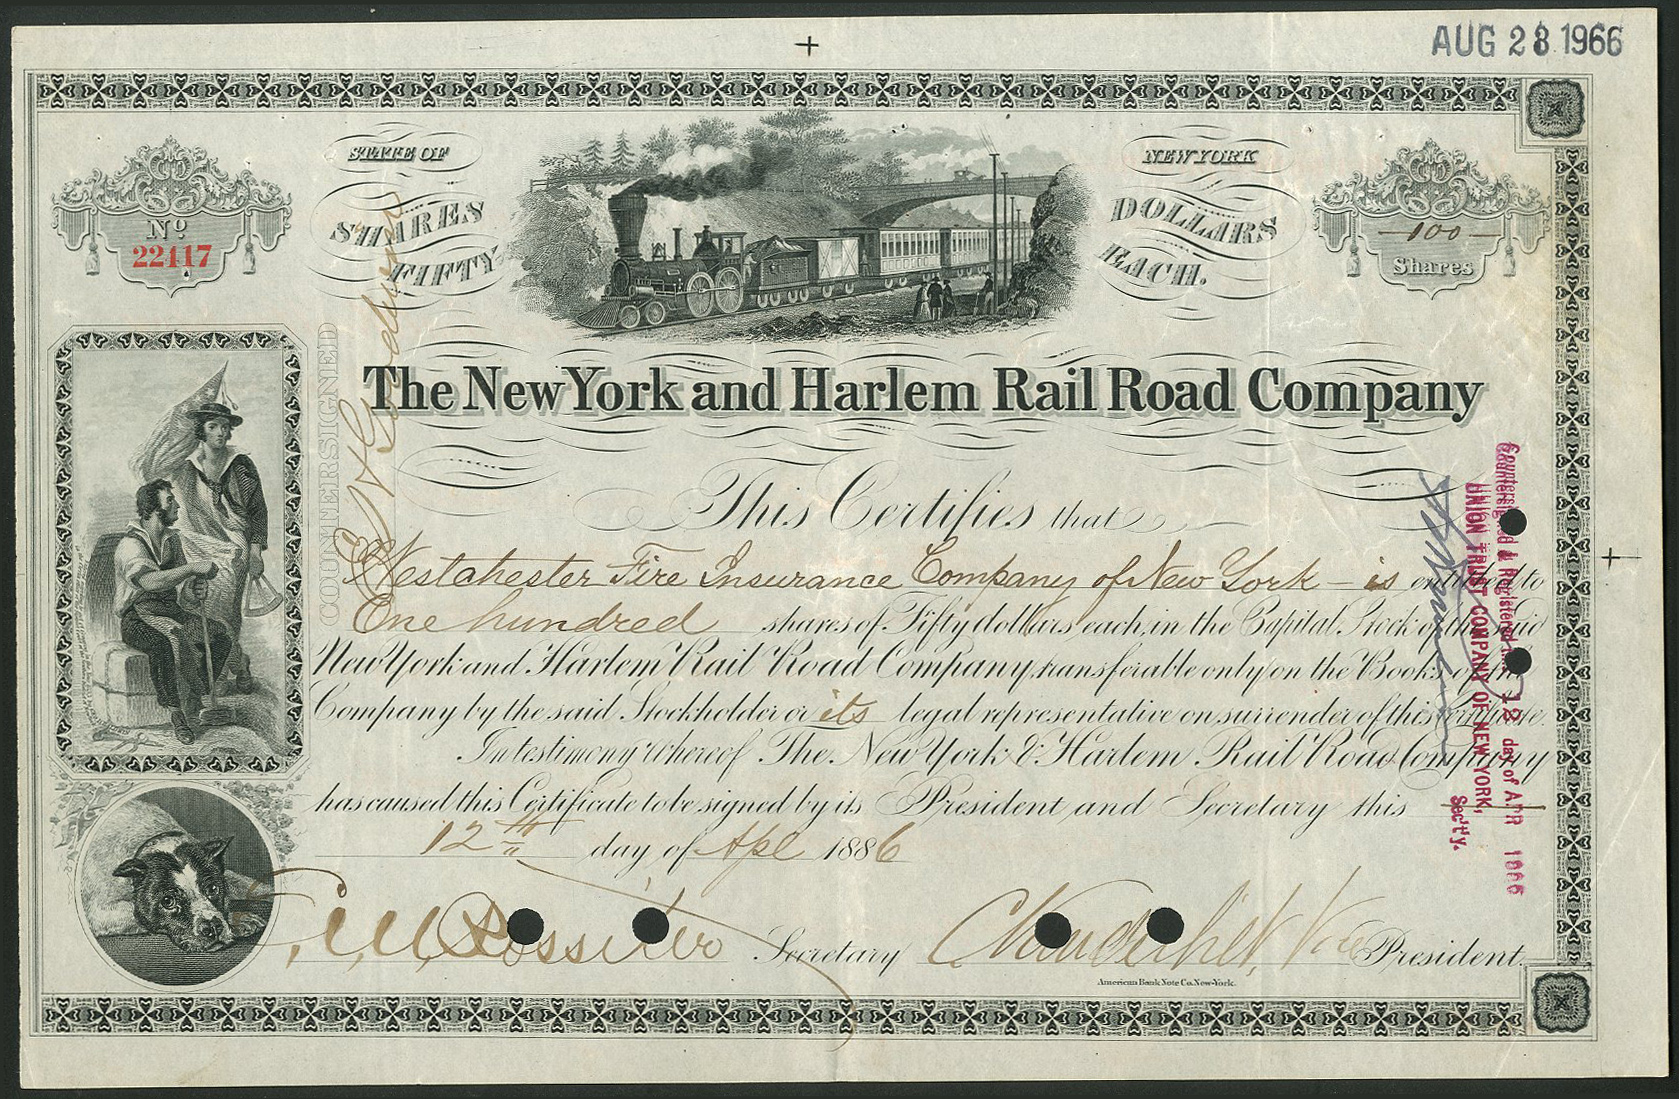 AUG 23 1966
STATE OF
NEW YORK
No.
22117
SHARES
FIFTY
DOLLARS
EACH.
100
Shares
COUNTERSIGNED
The New York and Harlem Rail Road Company
This Certifies that
Westchester Fire Insurance Company of New York – is entitled to
One hundred shares of Fifty dollars each, in the Capital Stock of the said
New York and Harlem Rail Road Company, transferable only on the Books of the
Company by the said Stockholder or its legal representative on surrender of this certificate.
In testimony Whereof The New York & Harlem Rail Road Company
has caused this Certificate to be signed by its President and Secretary this
12th day of Apl 1886
Secretary
C. Vanderbilt, Vice President.
American Bank Note Co. New-York.
Countersigned & Registered this 12 day of APR 1886
UNION TRUST COMPANY OF NEW YORK,
Sec'ty.